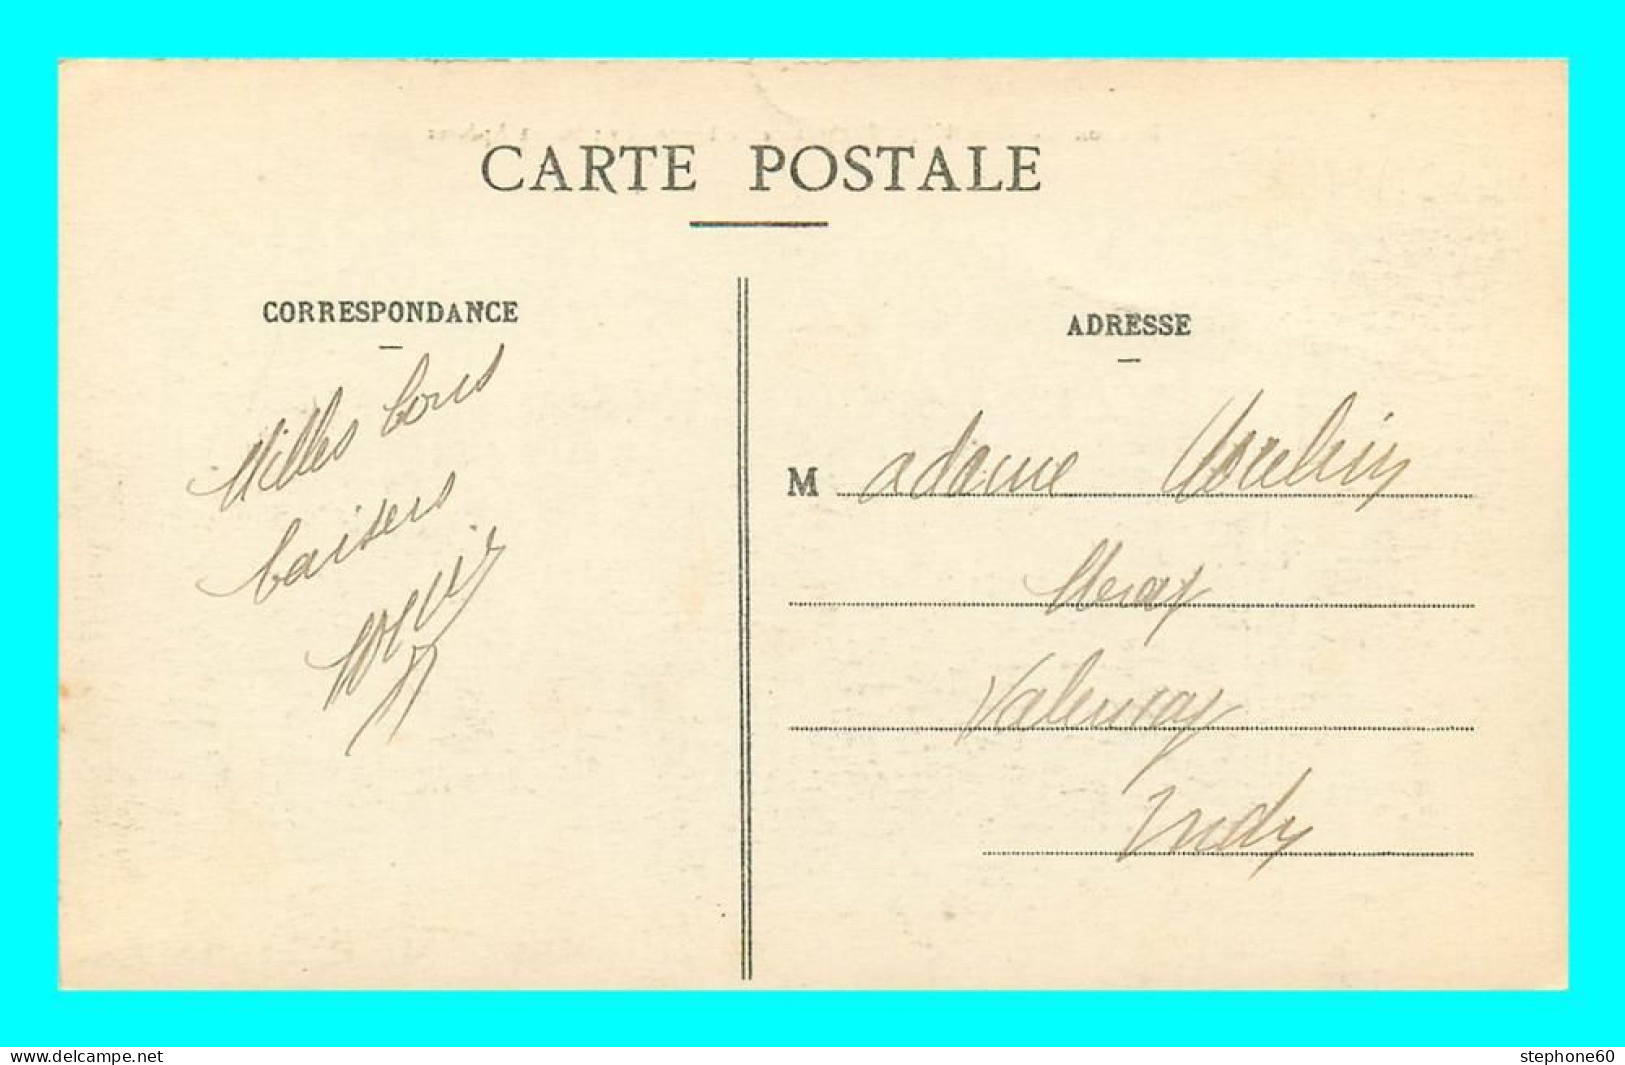 CARTE POSTALE
CORRESPONDANCE
Milles bons
baisers
ADRESSE
M adame
Valençay
Indre
www.delcampe.net
stephone60